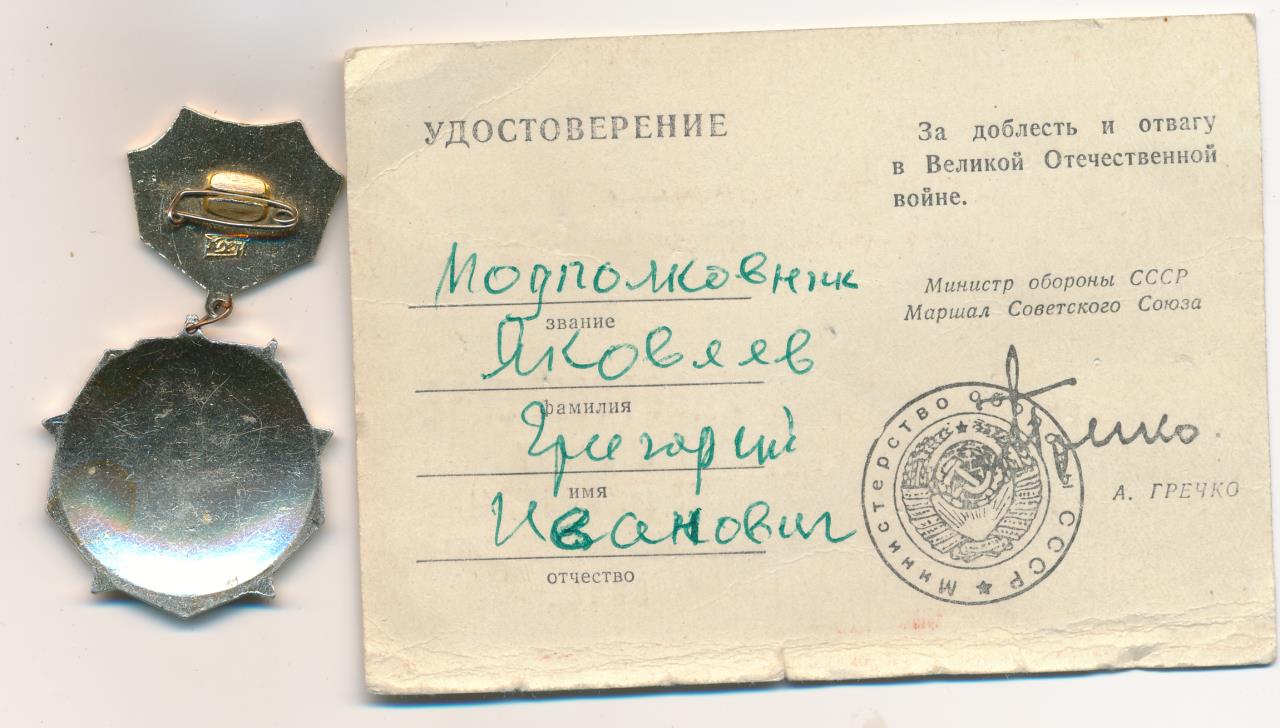 УДОСТОВЕРЕНИЕ
Подполковник
звание
Яковлев
фамилия
Григорий
имя
Иванович
отчество
За доблесть и отвагу
в Великой Отечественной
войне.
Министр обороны СССР
Маршал Советского Союза
Министерство обороны СССР
А. ГРЕЧКО